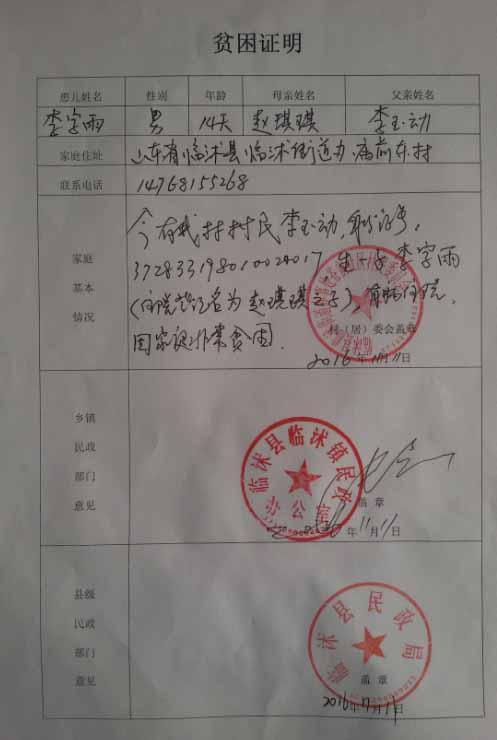 贫困证明
患儿姓名 性别 年龄 母亲姓名 父亲姓名
李字雨 男 14天 赵琪琪 李玉动
家庭住址 山东省临沭县临沭街道办 前东村
联系电话 14768155268
家庭
基本
情况
今有我村村民李玉动,身份证号,
372833198010024017,生一子李字雨
(住院登记名为赵琪琪之子),有病住院,
因家庭非常贫困.
村(居)委会盖章
2016年11月11日
乡镇
民政
部门
意见
临沭县临沭镇民政
办公室
盖 章
11月11日
县级
民政
部门
意见
临沭县民政局
盖 章
2016年11月11日